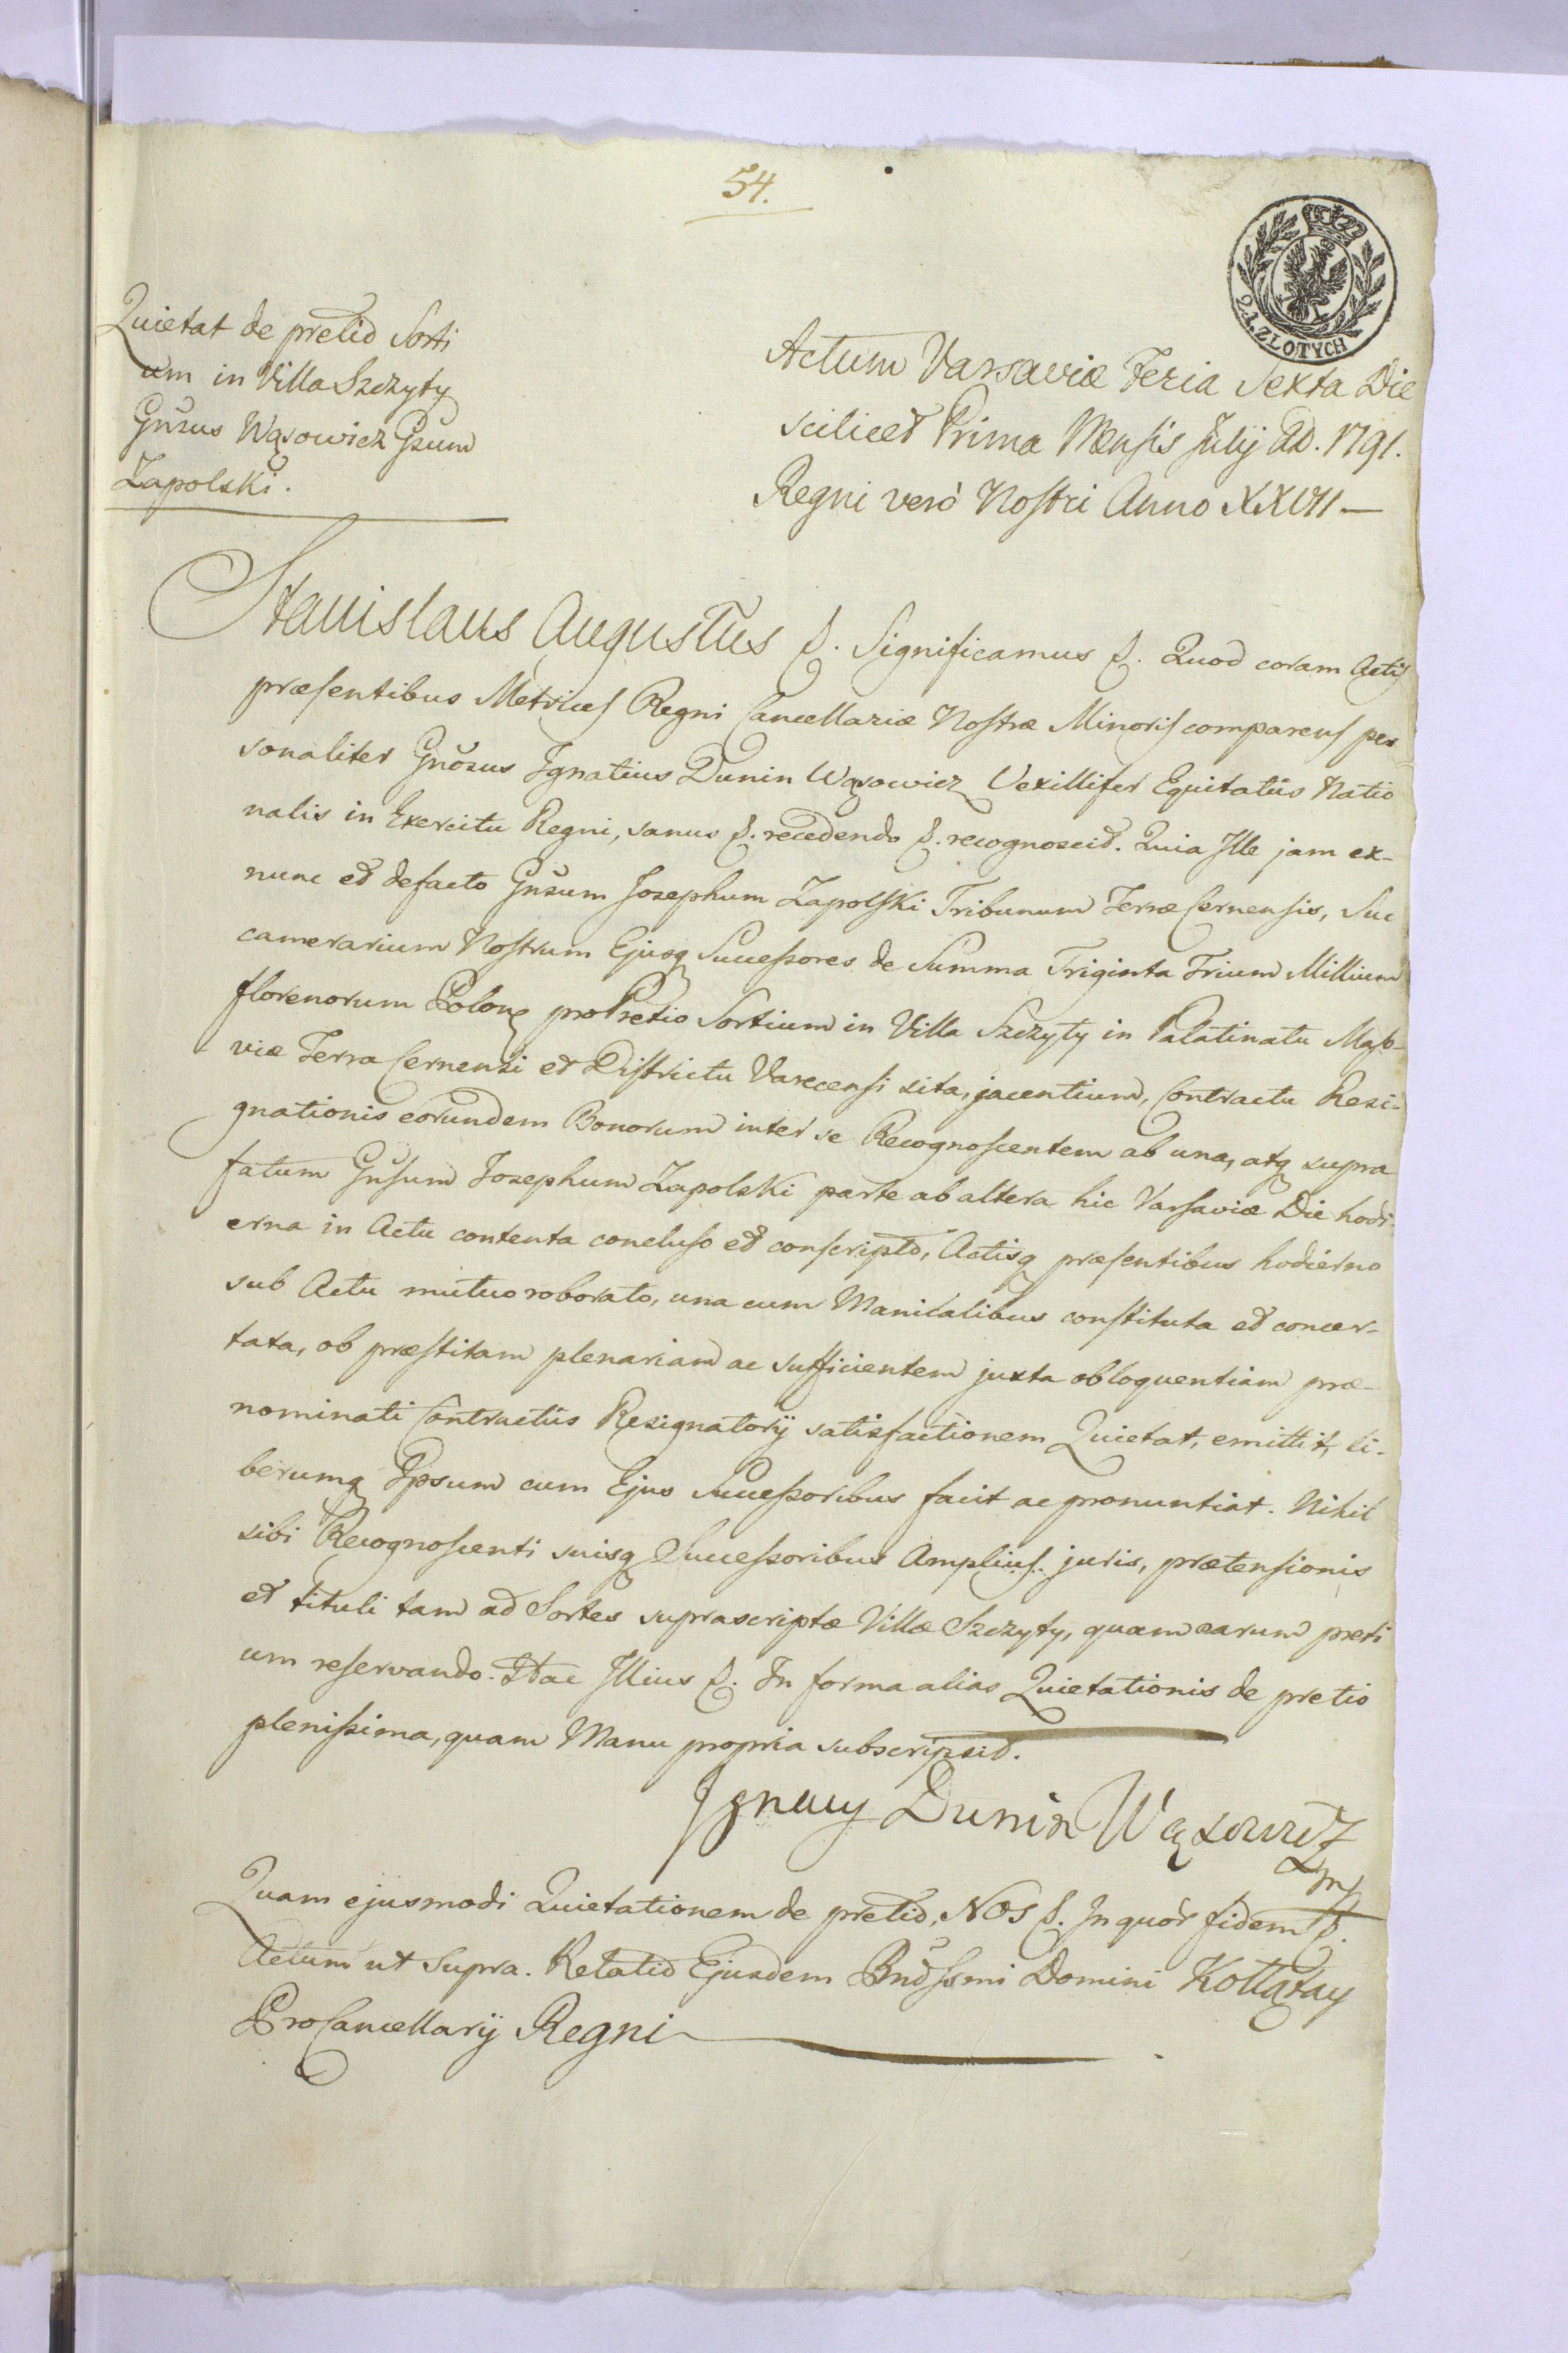 54.
2. ZLOTYCH
Quietat de pretio Sorti
um in Villa Szczyty
Gnsus Wąsowicz Gsum
Zapolski.
Actum Varsaviæ Feria Sexta Die
scilicet Prima Mensis Julij AD. 1791.
Regni verò Nostri Anno XXVII —
Stanislaus Augustus &. Significamus &. Quod coram Actis
præsentibus Metrices Regni Cancellariæ Nostræ Minoris comparens per
sonaliter Gnosus Ignatius Dunin Wąsowicz Vexillifer Equitatûs Natio
nalis in Exercitu Regni, sanus &. recedendo &. recognoscit. Quia Ille jam ex-
nunc et defacto Gnsum Josephum Zapolski Tribunum Terræ Cernensis, Suc
camerarium Nostrum Ejusq Successores de Summa Triginta Trium Millium
florenorum Polonq pro Pretio Sortium in Villa Szczyty in Palatinatu Maso-
viæ Terra Cernensi et Districtu Varecensi sita, jacentium, Contractu Resi-
gnationis eorundem Bonorum inter se Recognoscentem ab una, atq supra
fatum Gnsum Josephum Zapolski parte ab altera hic Varsaviæ Die hodi-
erna in Actu contenta concluso et conscripto, Actisq præsentibus hodierno
sub Actu mutuo roborato, una cum Manualibus constituta et concer-
tata, ob præstitam plenariam ac sufficientem juxta obloquentiam præ-
nominati Contractûs Resignatorij satisfactionem Quietat, emittit, li-
berumq Ipsum cum Ejus Successoribus facit ac pronuntiat. Nihil
sibi Recognoscenti suisq Successoribus Amplius juris, prætensionis
et tituli tam ad Sortes suprascriptæ Villæ Szczyty, quam earum preti
um reservando. Hac Illius &. In forma alias Quietationis de pretio
plenissima, quam Manu propria subscripsit.
Ignacy Dunin Wąsowicz
mp
Quam ejusmodi Quietationem de pretio, NOS &. In quor fidem &.
Actum ut supra. Relatio Ejusdem Bndssmi Domini Kołłątay
ProCancellarij Regni